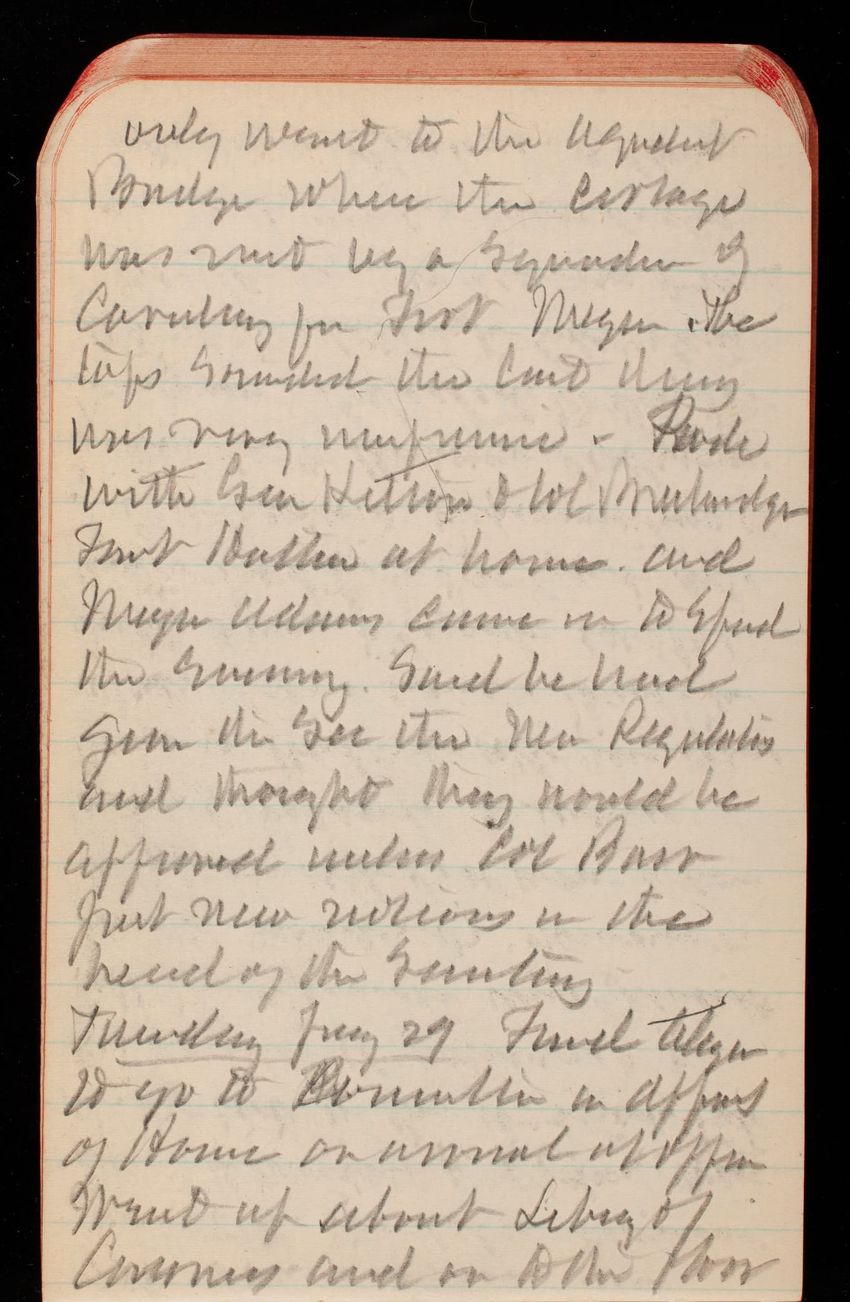 only went to the Aqueduct
Bridge where the Cortage
was met by a Squadron of
Cavalry from Fort Myer. The
taps sounded the last thing
was very impressive - Rode
with Gen & Col Breckenridge
Found at home. and
Major Adams came in to spend
the Evening. Said he had
gone to see the new Regulations
and thought they would be
approved unless Col Barr
put new notions in the
head of the Secretary
Tuesday Jany 29 Found
to go to Committee on affairs
of House on arrival at office
Went up about Library of
Congress and on to the floor